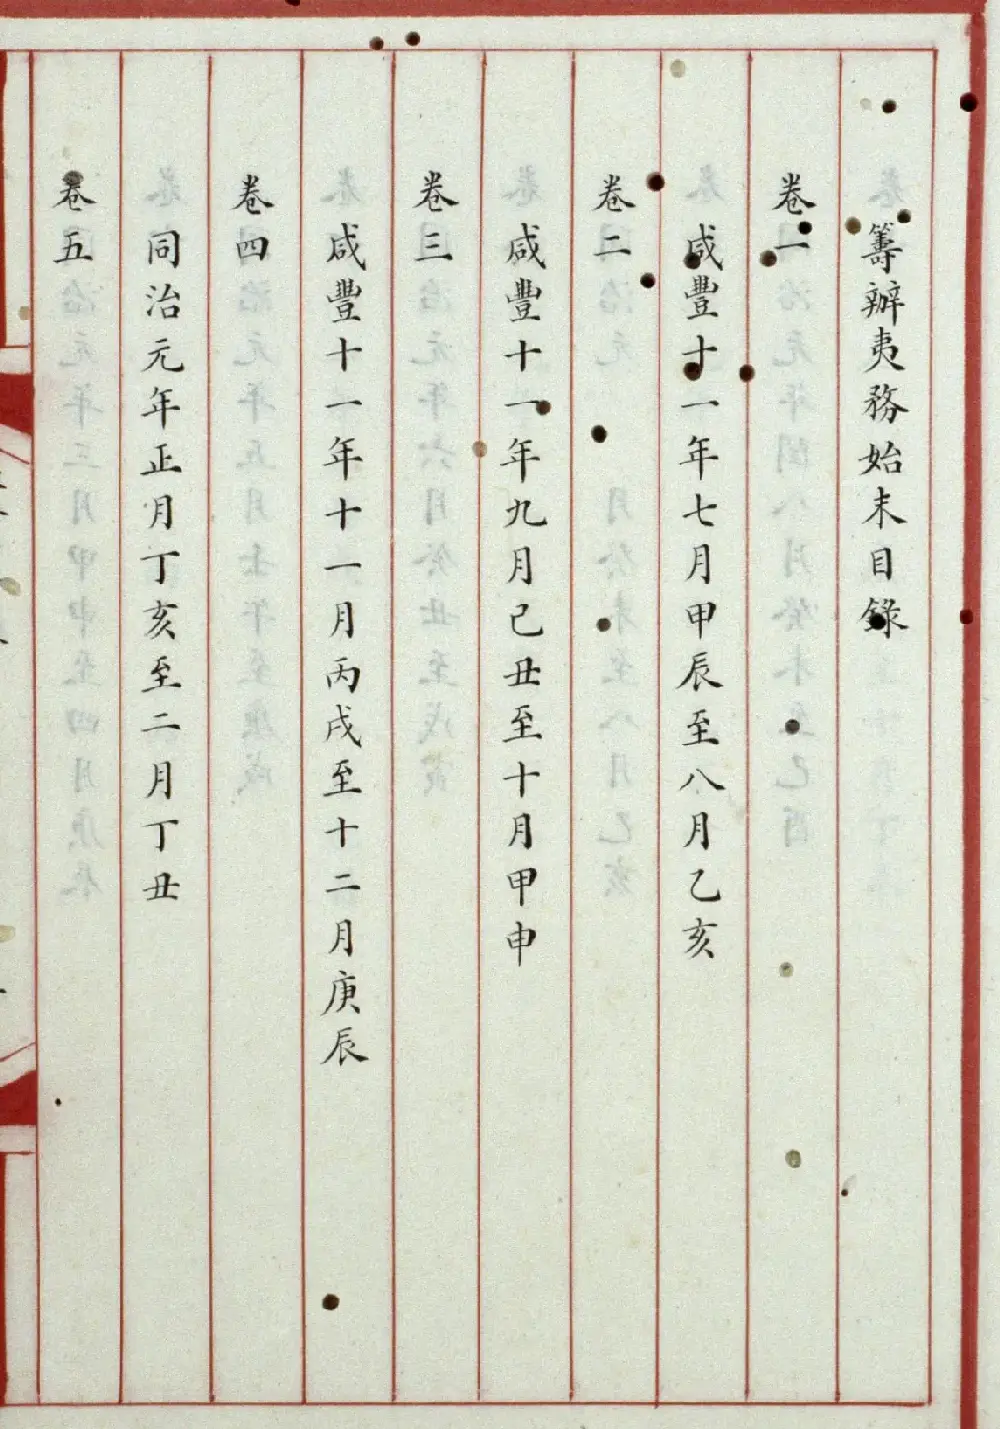 籌辦夷務始末目錄
卷一
咸豐十一年七月甲辰至八月乙亥
卷二
咸豐十一年九月己丑至十月甲申
卷三
咸豐十一年十一月丙戌至十二月庚辰
卷四
同治元年正月丁亥至二月丁丑
卷五